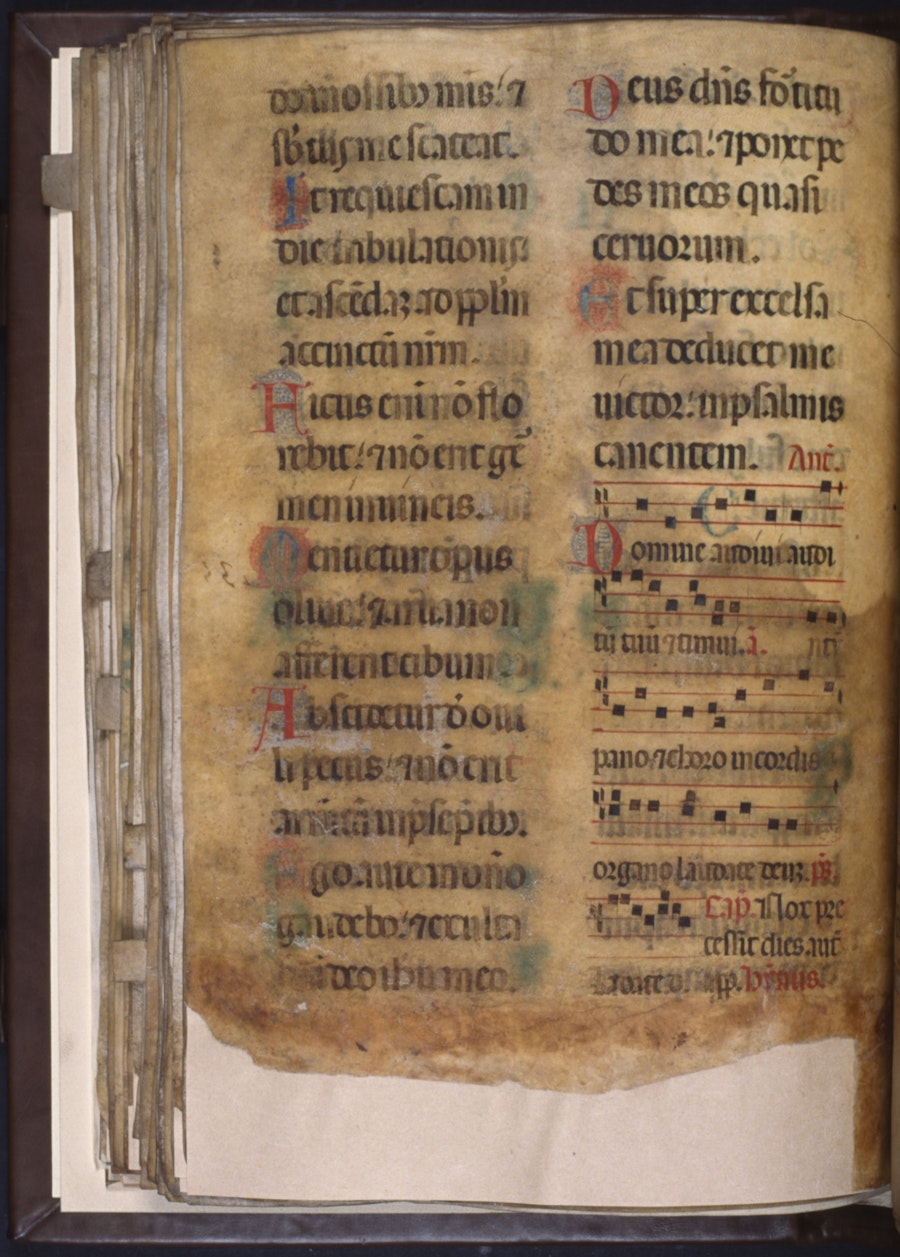 mis: ⁊
me scateat.
It requiescam in
die tribulationis
accinctū nrm.
Ficus eni nō flo
rebit: ⁊ nō erit gē
men in uineis.
Mentietur opus
oliue: ⁊ arua non
afferent cibum.
Abscidetur ō oui
li pecus: ⁊ nō erit
Ego aut in dño
gaudebo: ⁊ exulta
in deo ihu meo.
Deus dn̄s fortitu
do mea: ⁊ ponet pe
des meos quasi
ceruorum.
Et super excelsa
mea deducet me
uictor: in psalmis
canentem. Ant̄.
Domine audiui audi
tū tuū ⁊ timui. a̅.
pano ⁊ choro in cordis
organo laudate deuȝ. ps̄.
Cap̄. Nox pre
cessit dies aut̄
app. hymnus.